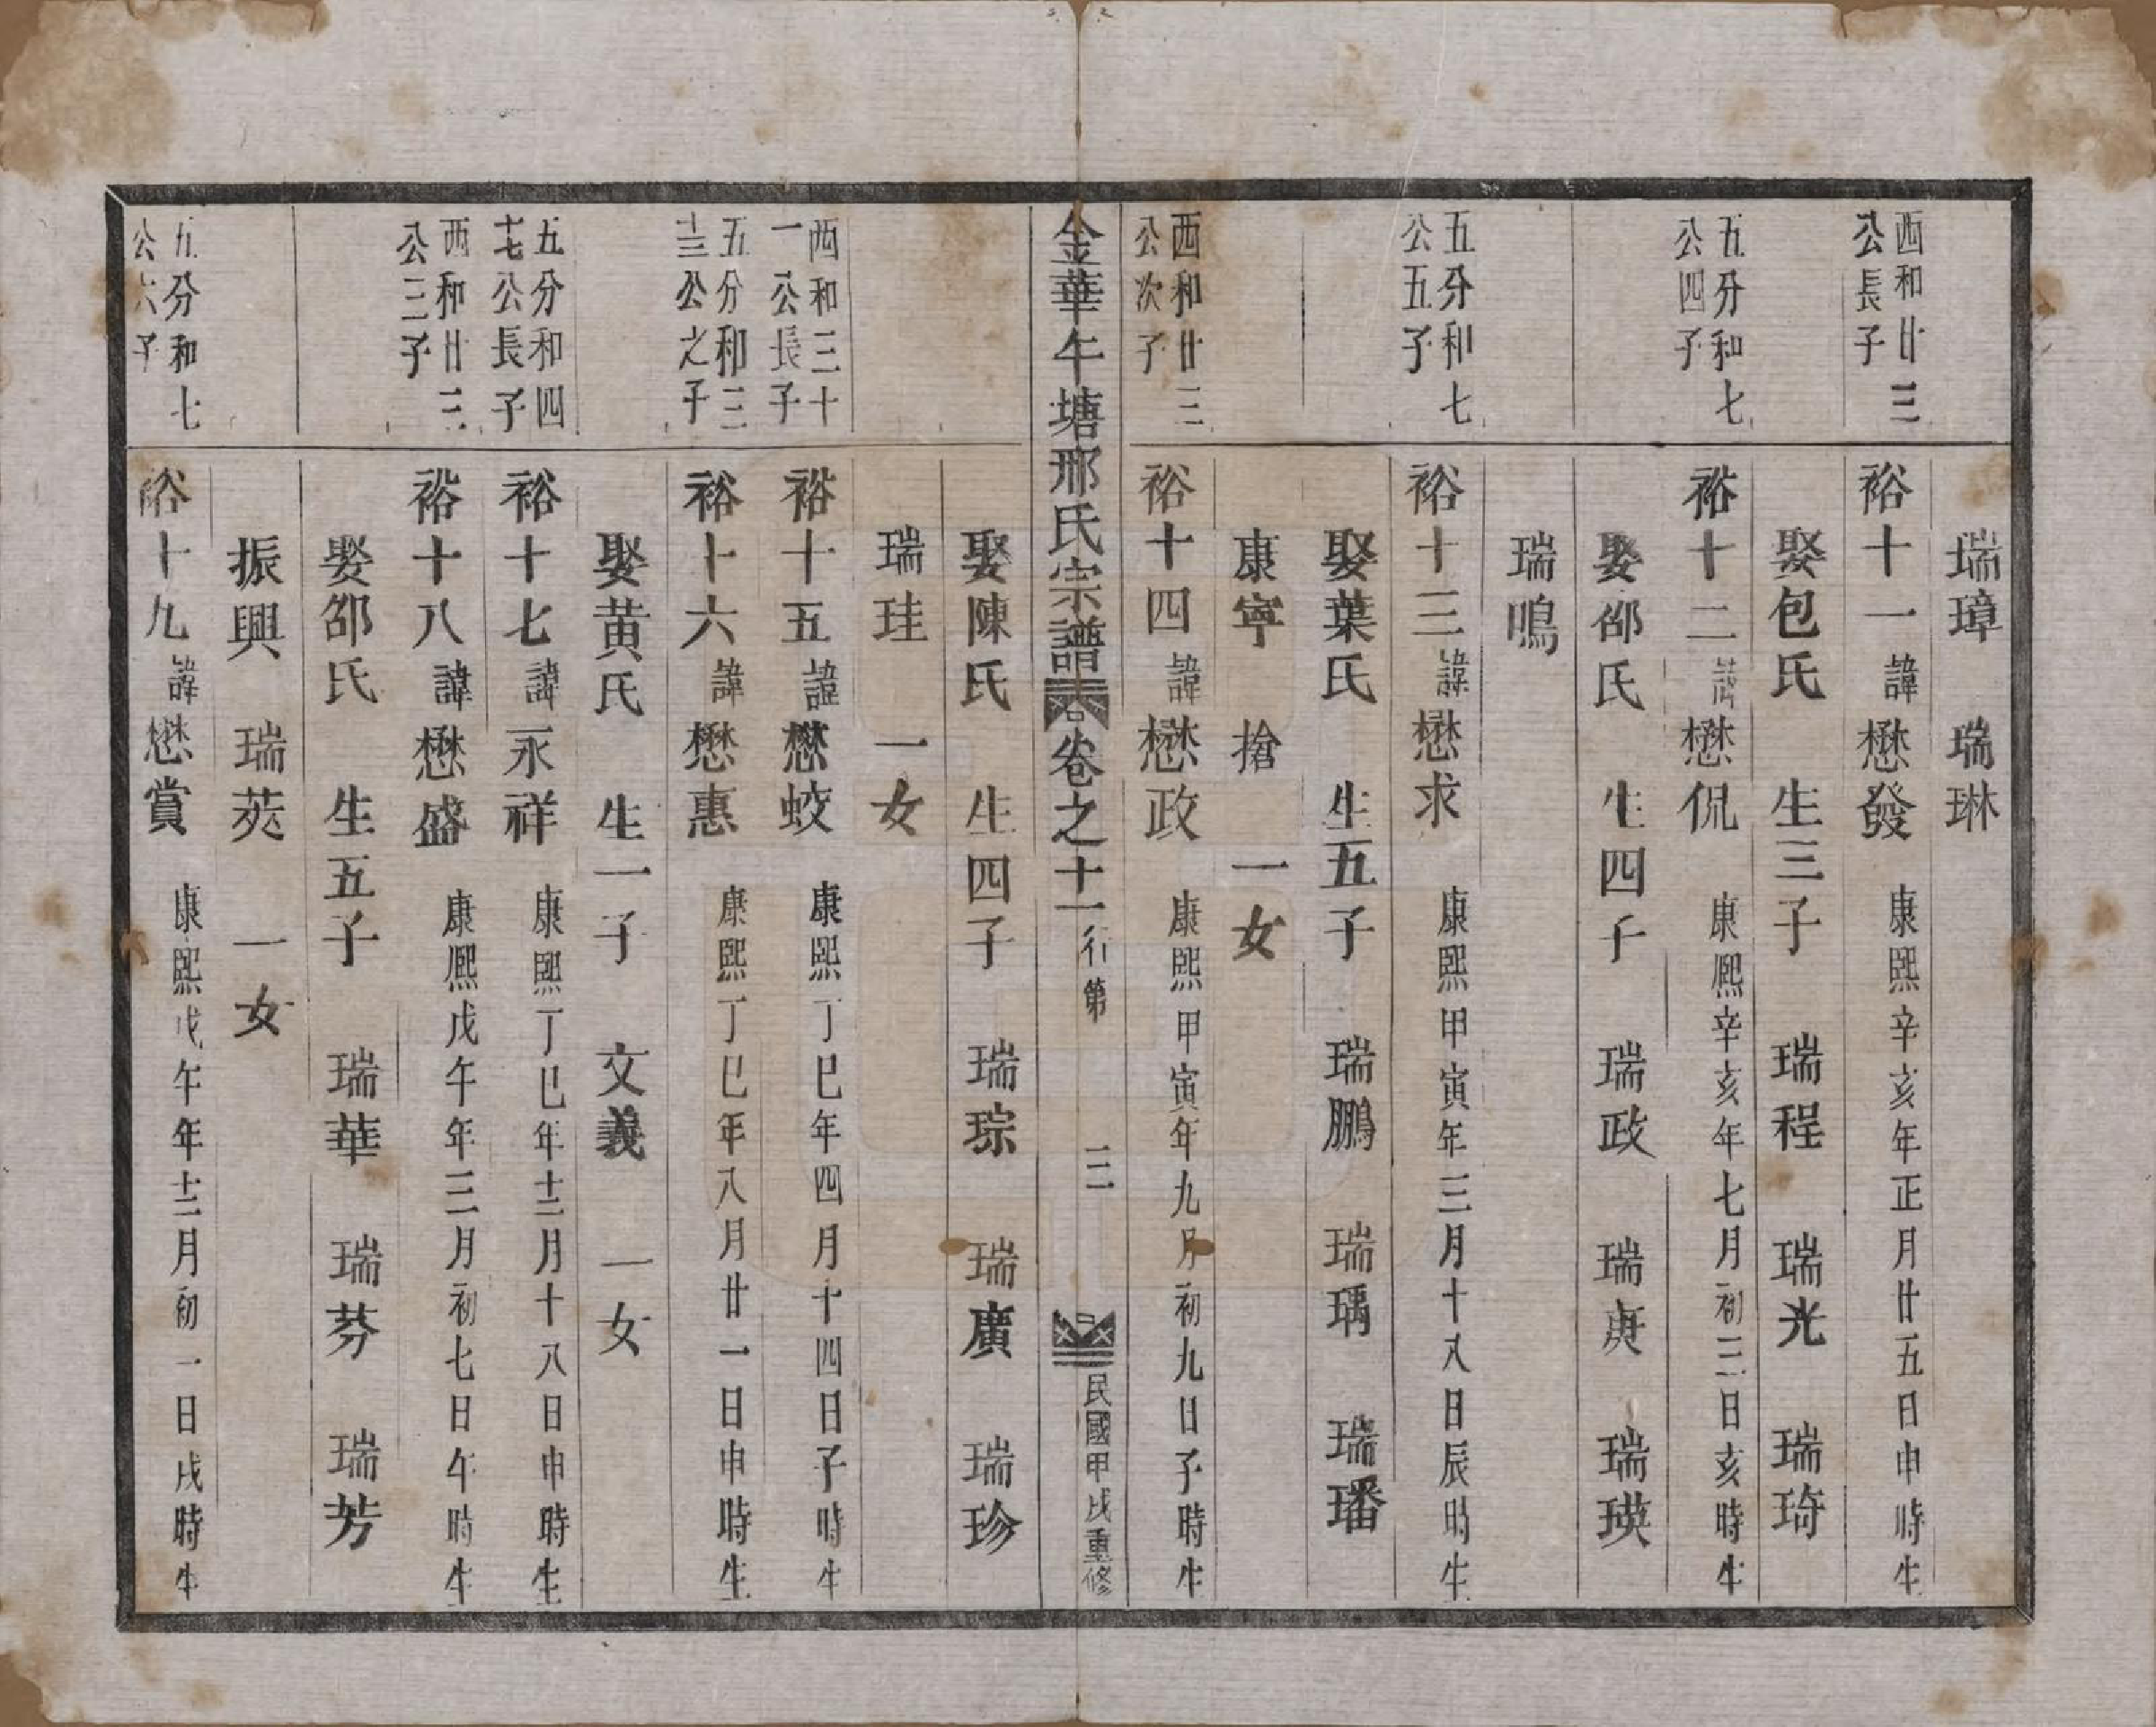 瑞璋　瑞琳
西和廿三公長子
裕十一諱懋發　康熙辛亥年正月廿五日申時生
娶包氏　生三子　瑞程　瑞光　瑞琦
五分和七公四子
裕十二諱懋侃　康熙辛亥年七月初三日亥時生
娶邵氏　生四子　瑞政　瑞庚　瑞瑛
瑞鳴
五分和七公五子
裕十三諱懋求　康熙甲寅年三月十八日辰時生
娶葉氏　生五子　瑞鵬　瑞瑀　瑞璠
康寧　搶　一女
西和廿三公次子
裕十四諱懋政　康熙甲寅年九月初九日子時生
金華午塘邢氏宗譜　卷之十一　行第　三　民國甲戌重修
娶陳氏　生四子　瑞琮　瑞廣　瑞珍
瑞珪　一女
西和三十一公長子
裕十五諱懋蛟　康熙丁巳年四月十四日子時生
五分和三十三公之子
裕十六諱懋惠　康熙丁巳年八月廿一日申時生
娶黃氏　生一子　文義　一女
五分和四十七公長子
裕十七諱永祥　康熙丁巳年十二月十八日申時生
西和廿三公三子
裕十八諱懋盛　康熙戊午年三月初七日午時生
娶邵氏　生五子　瑞華　瑞芬　瑞芳
振興　瑞莢　一女
五分和七公六子
裕十九諱懋賞　康熙戊午年十二月初一日戌時生